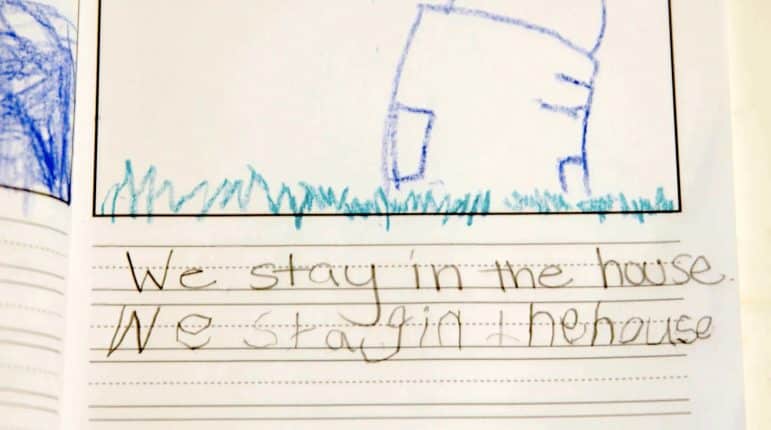 We stay in the house.
We stay in the house